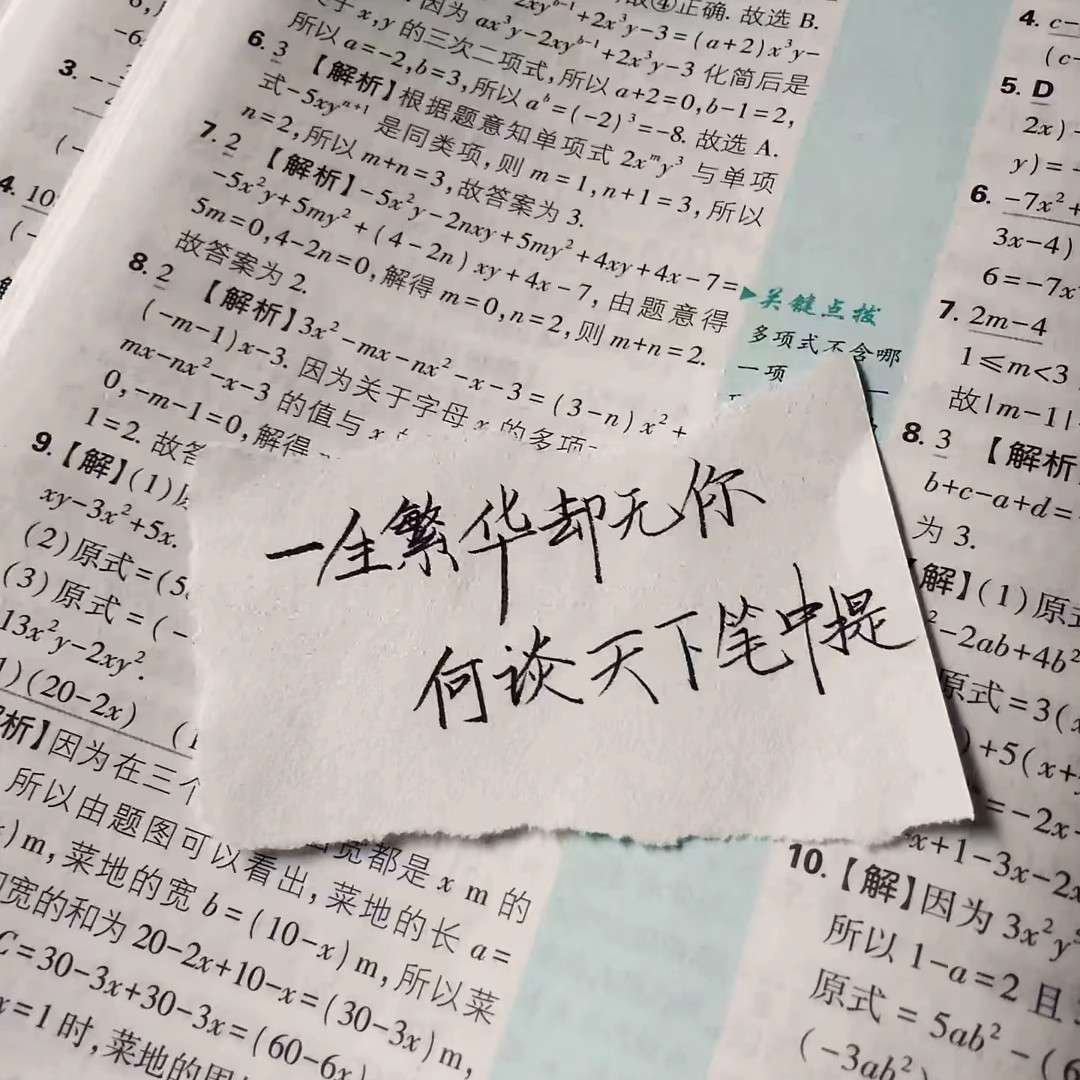 2xy^{b-1}+2x³y-3=(a+2)x³y-
故④正确. 故选 B.
因为 ax³y-2xy^{b-1}+2x³y-3 化简后是
x,y 的三次二项式,所以 a+2=0,b-1=2,
所以 a=-2,b=3,所以 a^b=(-2)³=-8. 故选 A.
6. 3 【解析】根据题意知单项式 2x^m y³ 与单项
式-5xy^{n+1} 是同类项,则 m=1,n+1=3,所以
n=2,所以 m+n=3,故答案为 3.
7. 2 【解析】-5x²y-2nxy+5my²+4xy+4x-7=
-5x²y+5my²+(4-2n)xy+4x-7,由题意得
5m=0,4-2n=0,解得 m=0,n=2,则 m+n=2.
故答案为 2.
8. 2 【解析】3x²-mx-nx²-x-3=(3-n)x²+
(-m-1)x-3. 因为关于字母 x 的多项
mx-nx²-x-3 的值与 x
0,-m-1=0,解得
1=2. 故答
9.【解】(1)
xy-3x²+5x.
(2)原式=(5
(3)原式=(-
13x²y-2xy².
)(20-2x)
析】因为在三个
所以由题图可以看出,菜地的长 a=
宽都是 x m 的
)m,菜地的宽 b=(10-x)m,所以菜
宽的和为 20-2x+10-x=(30-3x)m,
C=30-3x+30-3x=(60-6x)
x=1 时,菜地的周
▶关键点拨
多项式不含哪
一项
一生繁华却无你
何谈天下笔中提
3. -
4. 10
(-
4. c-
(c-
5. D
2x)-
y)=-
6. -7x²+
3x-4)
6=-7x
7. 2m-4
1≤m<3
故|m-1|
8. 3 【解析
b+c-a+d=
为 3.
解】(1)原
-2ab+4b²
原式=3(
)+5(x+
=-2x-
x+1-3x-2
10.【解】因为 3x²y
所以 1-a=2 且
原式=5ab²-(6
(-3ab²)